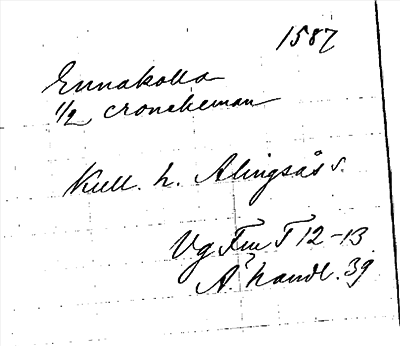 1587
Ennakolla
1/2 cronekeman
Kull. h. Alingsås s.
Vg Fm T 12-13
Ä handl. 39